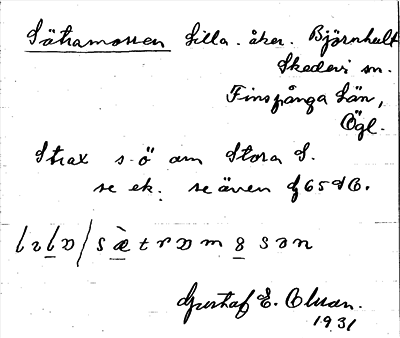 Sätramossen Lilla. åker. Björnhult
Skedevi sn.
Finspånga Län,
Ögl.
Strax s.ö om Stora S.
se ek. se även
Gustaf E. Olsson.
1931